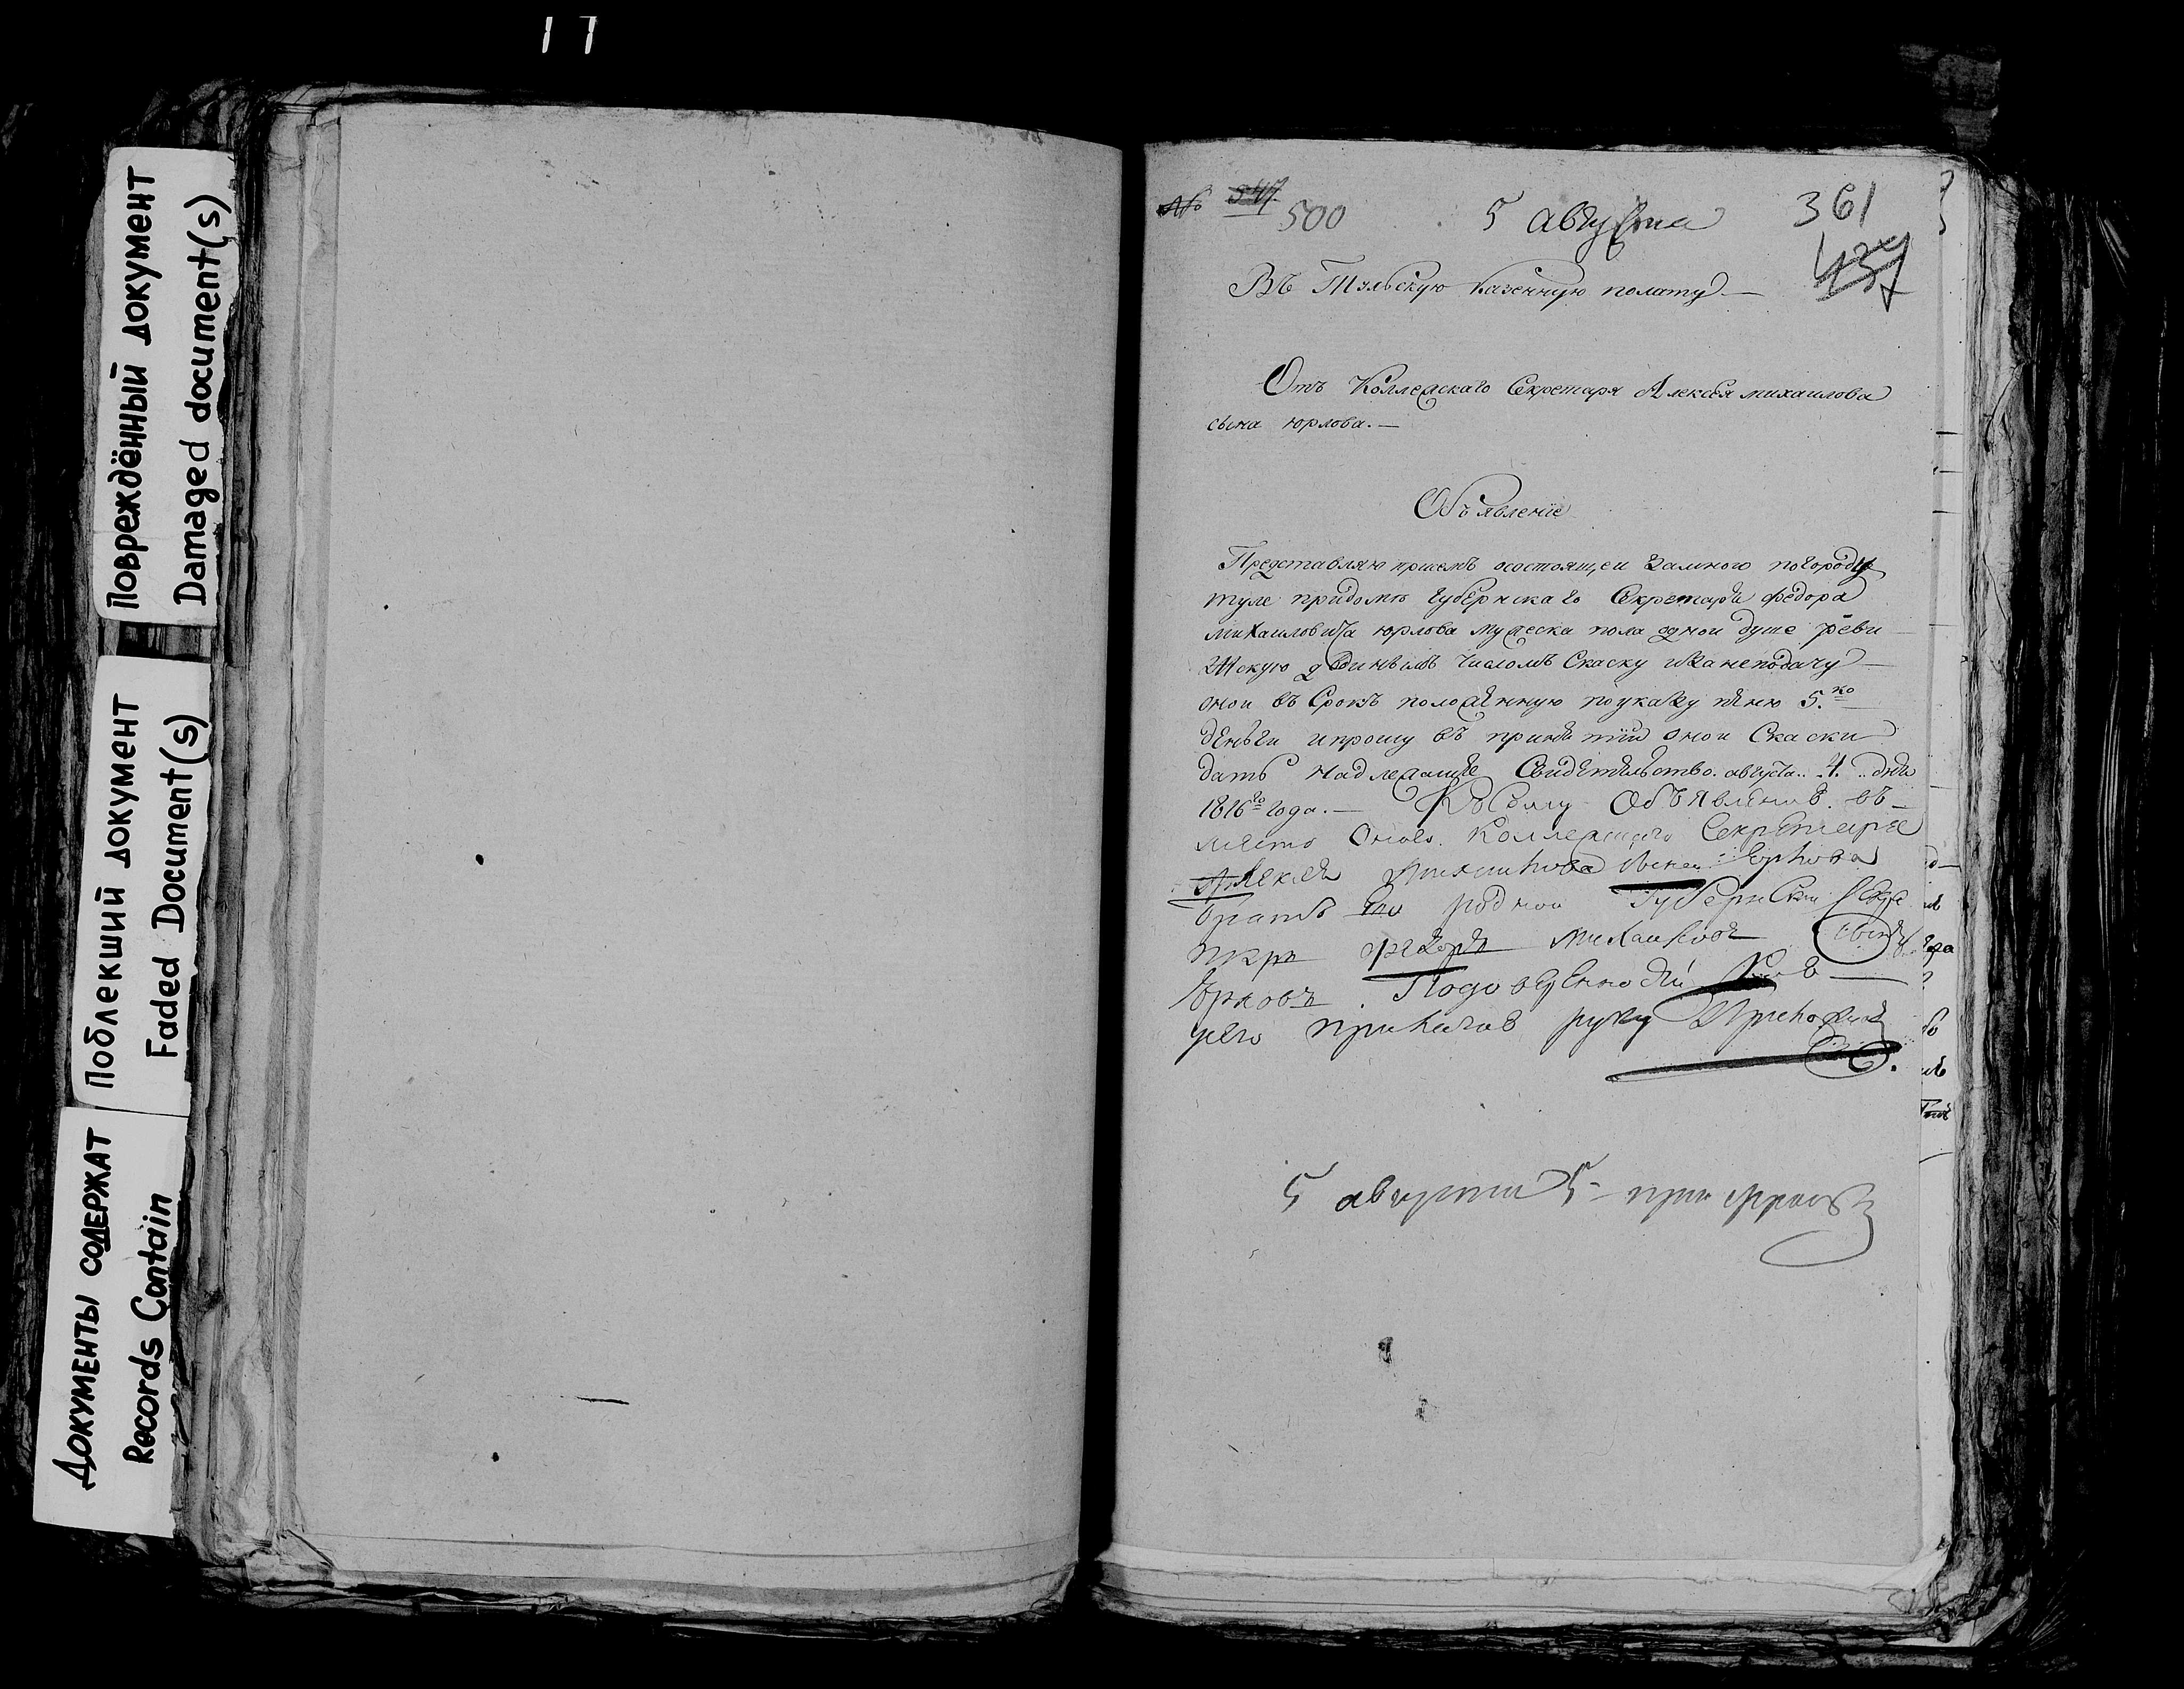 Повреждённый документ
Damaged document(s)
Поблекший документ
Faded Document(s)
Документы содержат
Records Contain
№ 547
500
5 августа
361
437
Въ Тульскую казенную полату
Отъ Коллежскаго Секретаря Алексея михаилова
сына юрлова.
Объявленïе
Представляю присемъ осостоящеи замною погороду
туле придомѣ губернскаго Секретаря федора
михаиловича юрлова мужеска пола однои душе реви
жскую числомъ Скаску изанеподачу
онои въ Срокъ положенную поуказу пѣню 5.
деньги ипрошу въ принятïи онои Скаски
дать надлежащѣе Свидѣтельство. августа 4. дня
1816го года. Ксему Объявлению въ
место Коллежскаго Секретаря
Алексея Михаилова сына Юрлова
братъ Его роднои Губернски Секре
тарь Федоръ Михаиловъ сынъ
Юрловъ
его приказу руку приложилъ
5 августа